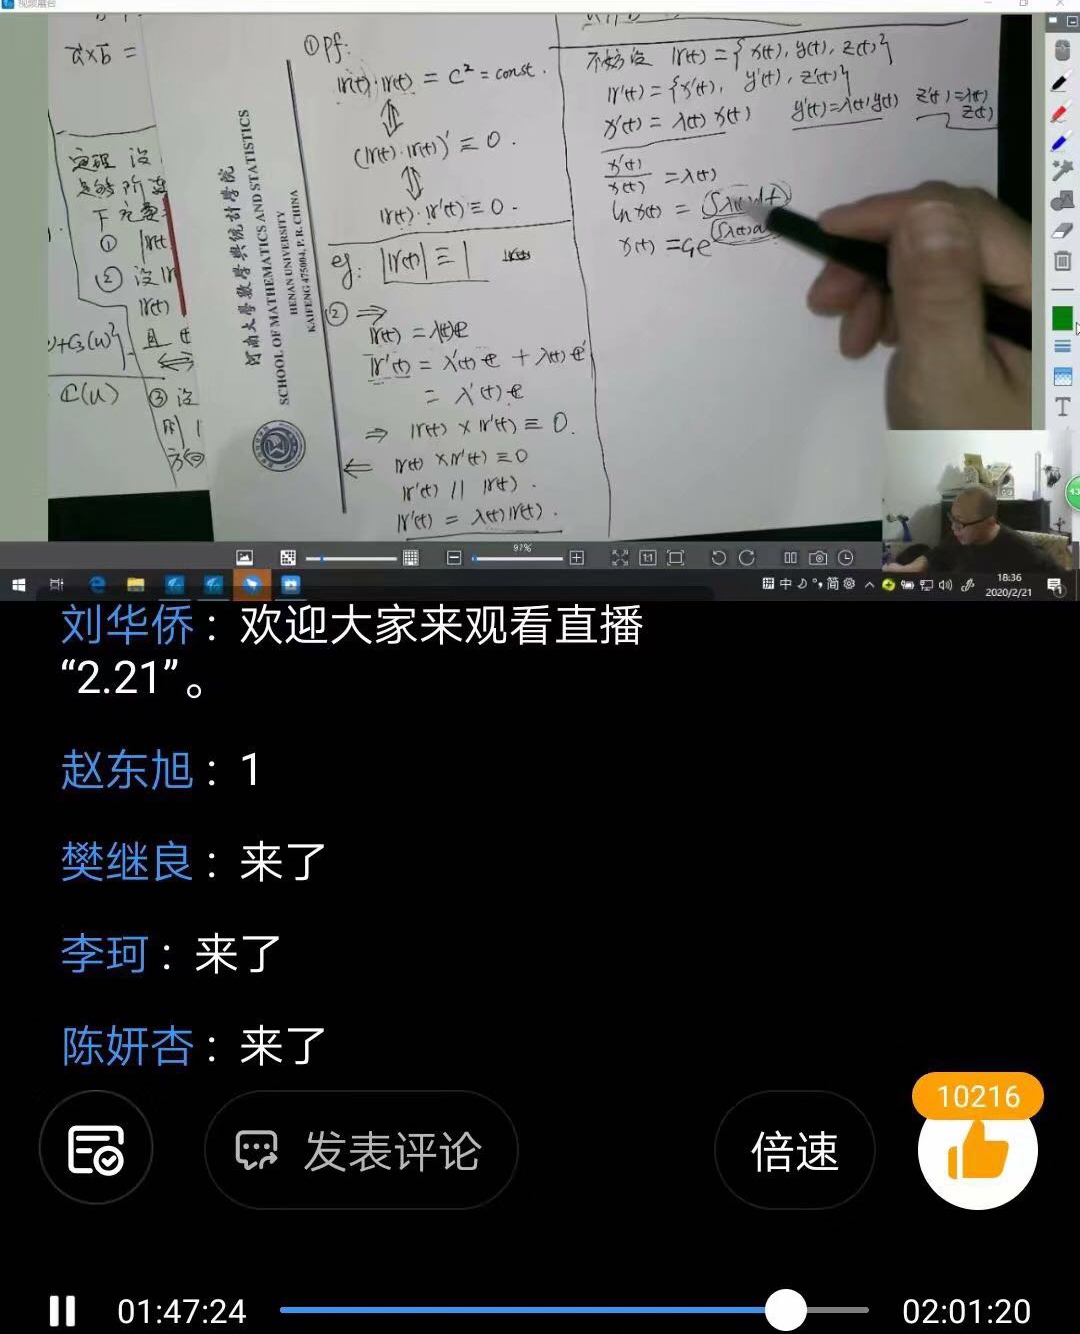 视频展台
a×b =
定理 设
下
①
② 设
且
C(u)
③ 设
河南大學數學與統計學院
SCHOOL OF MATHEMATICS AND STATISTICS
HENAN UNIVERSITY
KAIFENG 475004, P. R. CHINA
① pf:
r(t)·r(t) = C² = const.
(r(t)·r(t))' ≡ 0.
r(t)·r'(t) ≡ 0.
eg: |r(t)| ≡ 1
② ⇒
r(t) = λ(t)e
r'(t) = λ'(t)e + λ(t)e'
= λ'(t)e
⇒ r(t) × r'(t) ≡ 0.
⇐ r(t) × r'(t) ≡ 0
r'(t) // r(t).
r'(t) = λ(t)r(t).
不妨设 r(t) = {x(t), y(t), z(t)}
r'(t) = {x'(t), y'(t), z'(t)}
x'(t) = λ(t)x(t) y'(t)=λ(t)y(t) z'(t)=λ(t)z(t)
x'(t)/x(t) = λ(t)
ln x(t) = ∫λ(t)dt
97%
1:1
T
中
简
18:36
2020/2/21
刘华侨：欢迎大家来观看直播
“2.21”。
赵东旭：1
樊继良：来了
李珂：来了
陈妍杏：来了
10216
发表评论
倍速
01:47:24
02:01:20